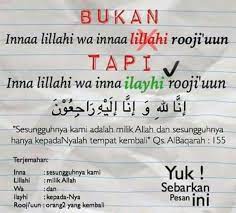 BUKAN
Innaa lillahi wa innaa lillahi rooji'uun
TAPI
Inna lillahi wa inna ilayhi rooji'uun
إِنَّا لِلَّهِ وَ إِنَّا إِلَيْهِ رَاجِعُوْنَ
"Sesungguhnya kami adalah milik Allah dan sesungguhnya
hanya kepadaNyalah tempat kembali" Qs. AlBaqarah : 155
Terjemahan:
Inna : sesungguhnya kami
Lillahi : milik Allah
Wa : dan
ilayhi : kepada-Nya
Rooji'uun : orang2 yang kembali
Yuk !
Sebarkan
Pesan ini